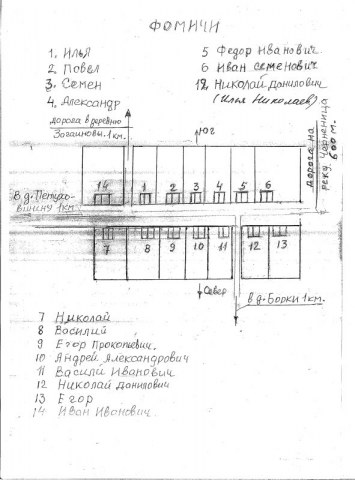 ФОМИЧИ
1. ИЛЬЯ
2 Повел
3. Семен
4. Александр
5 Федор Иванович
6 Иван Семенович
12 Николай Данилович
(Илья Николаев)
дорога в деревню
1 км.
ЮГ
дорога на
реку Чорненица
600 м.
14 1 2 3 4 5 6
В д. Петухо-
вщиня 1 км
7 8 9 10 11 12 13
Север
в д. Борки 1 км.
7 Николай
8 Василий
9 Егор Прокопьевич.
10 Андрей Александрович
11 Васили Иванович
12 Николай Данилович
13 Егор
14 Иван Иванович